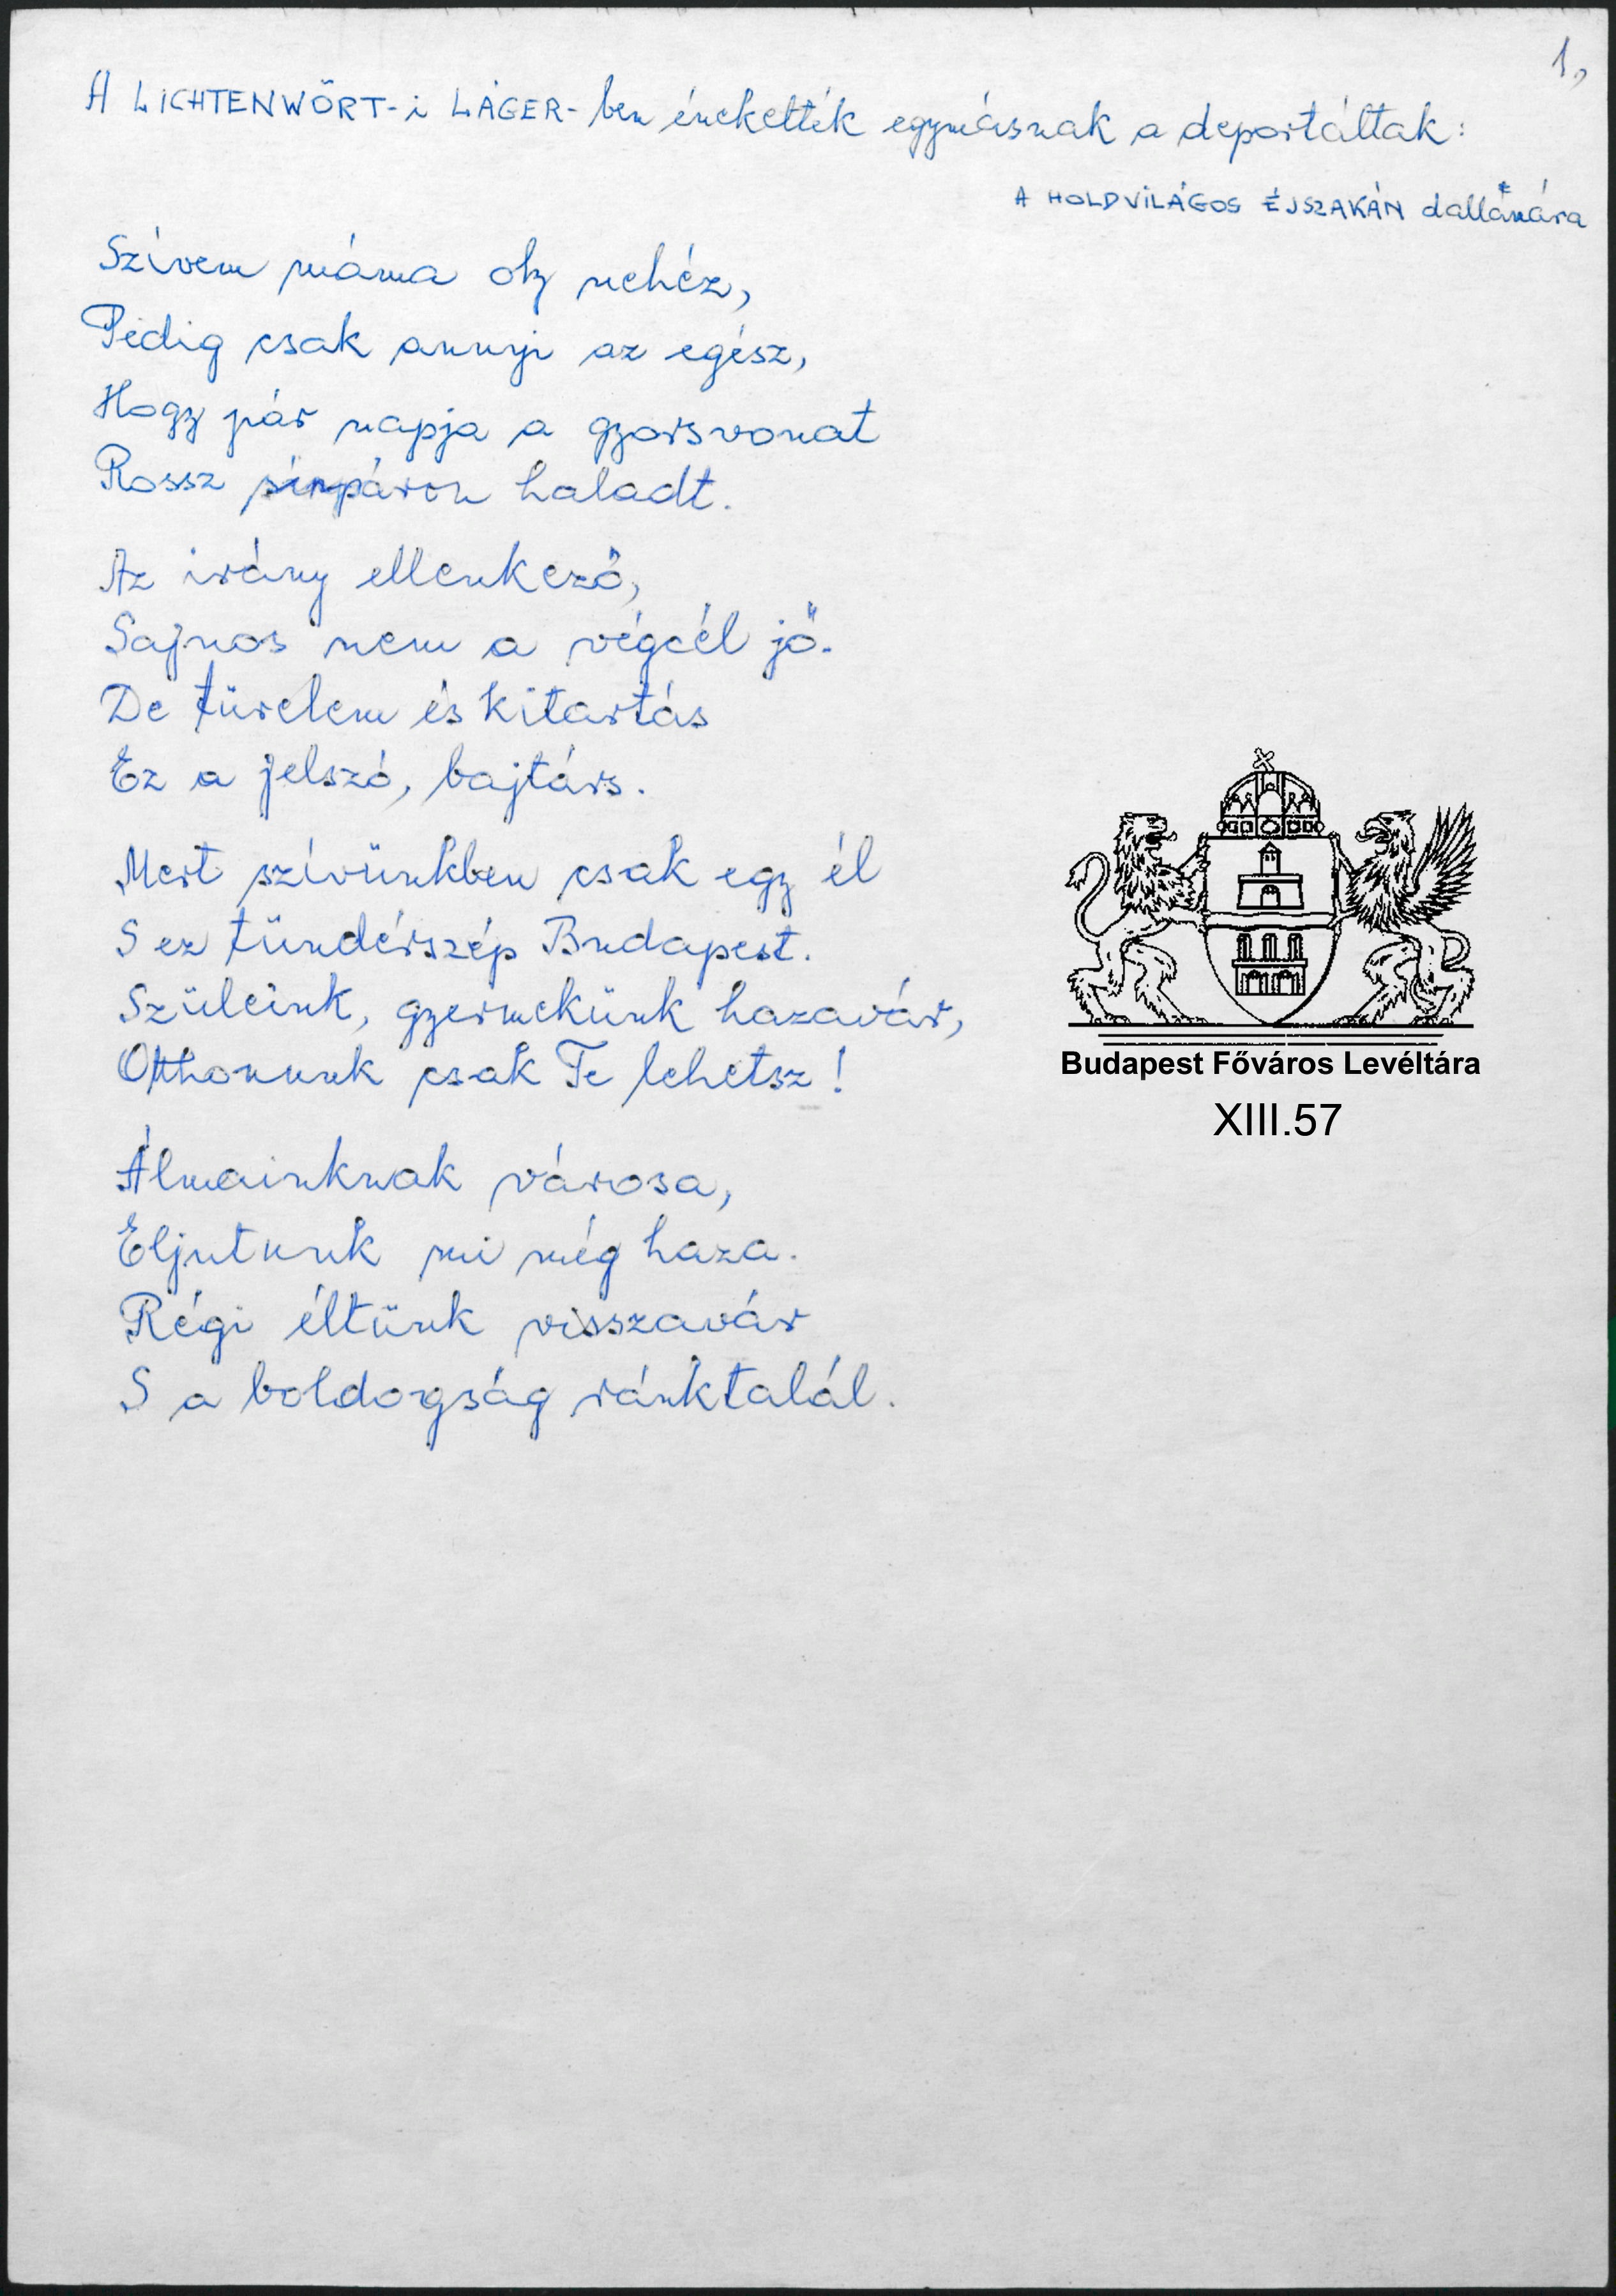 1,
A LICHTENWÖRT-i LÁGER-ben énekelték egymásnak a deportáltak:
A HOLDVILÁGOS ÉJSZAKÁN dallamára
Szívem máma oly nehéz,
Pedig csak annyi az egész,
Hogy pár napja a gyorsvonat
Rossz sínpáron haladt.
Az irány ellenkező,
Sajnos nem a végcél jő.
De türelem és kitartás
Ez a jelszó, bajtárs.
Mert szívünkben csak egy él
S ez tündérszép Budapest.
Szüleink, gyermekünk hazavár,
Otthonunk csak Te lehetsz!
Álmainknak városa,
Eljutunk mi még haza.
Régi éltünk visszavár
S a boldogság ránktalál.
Budapest Főváros Levéltára
XIII.57